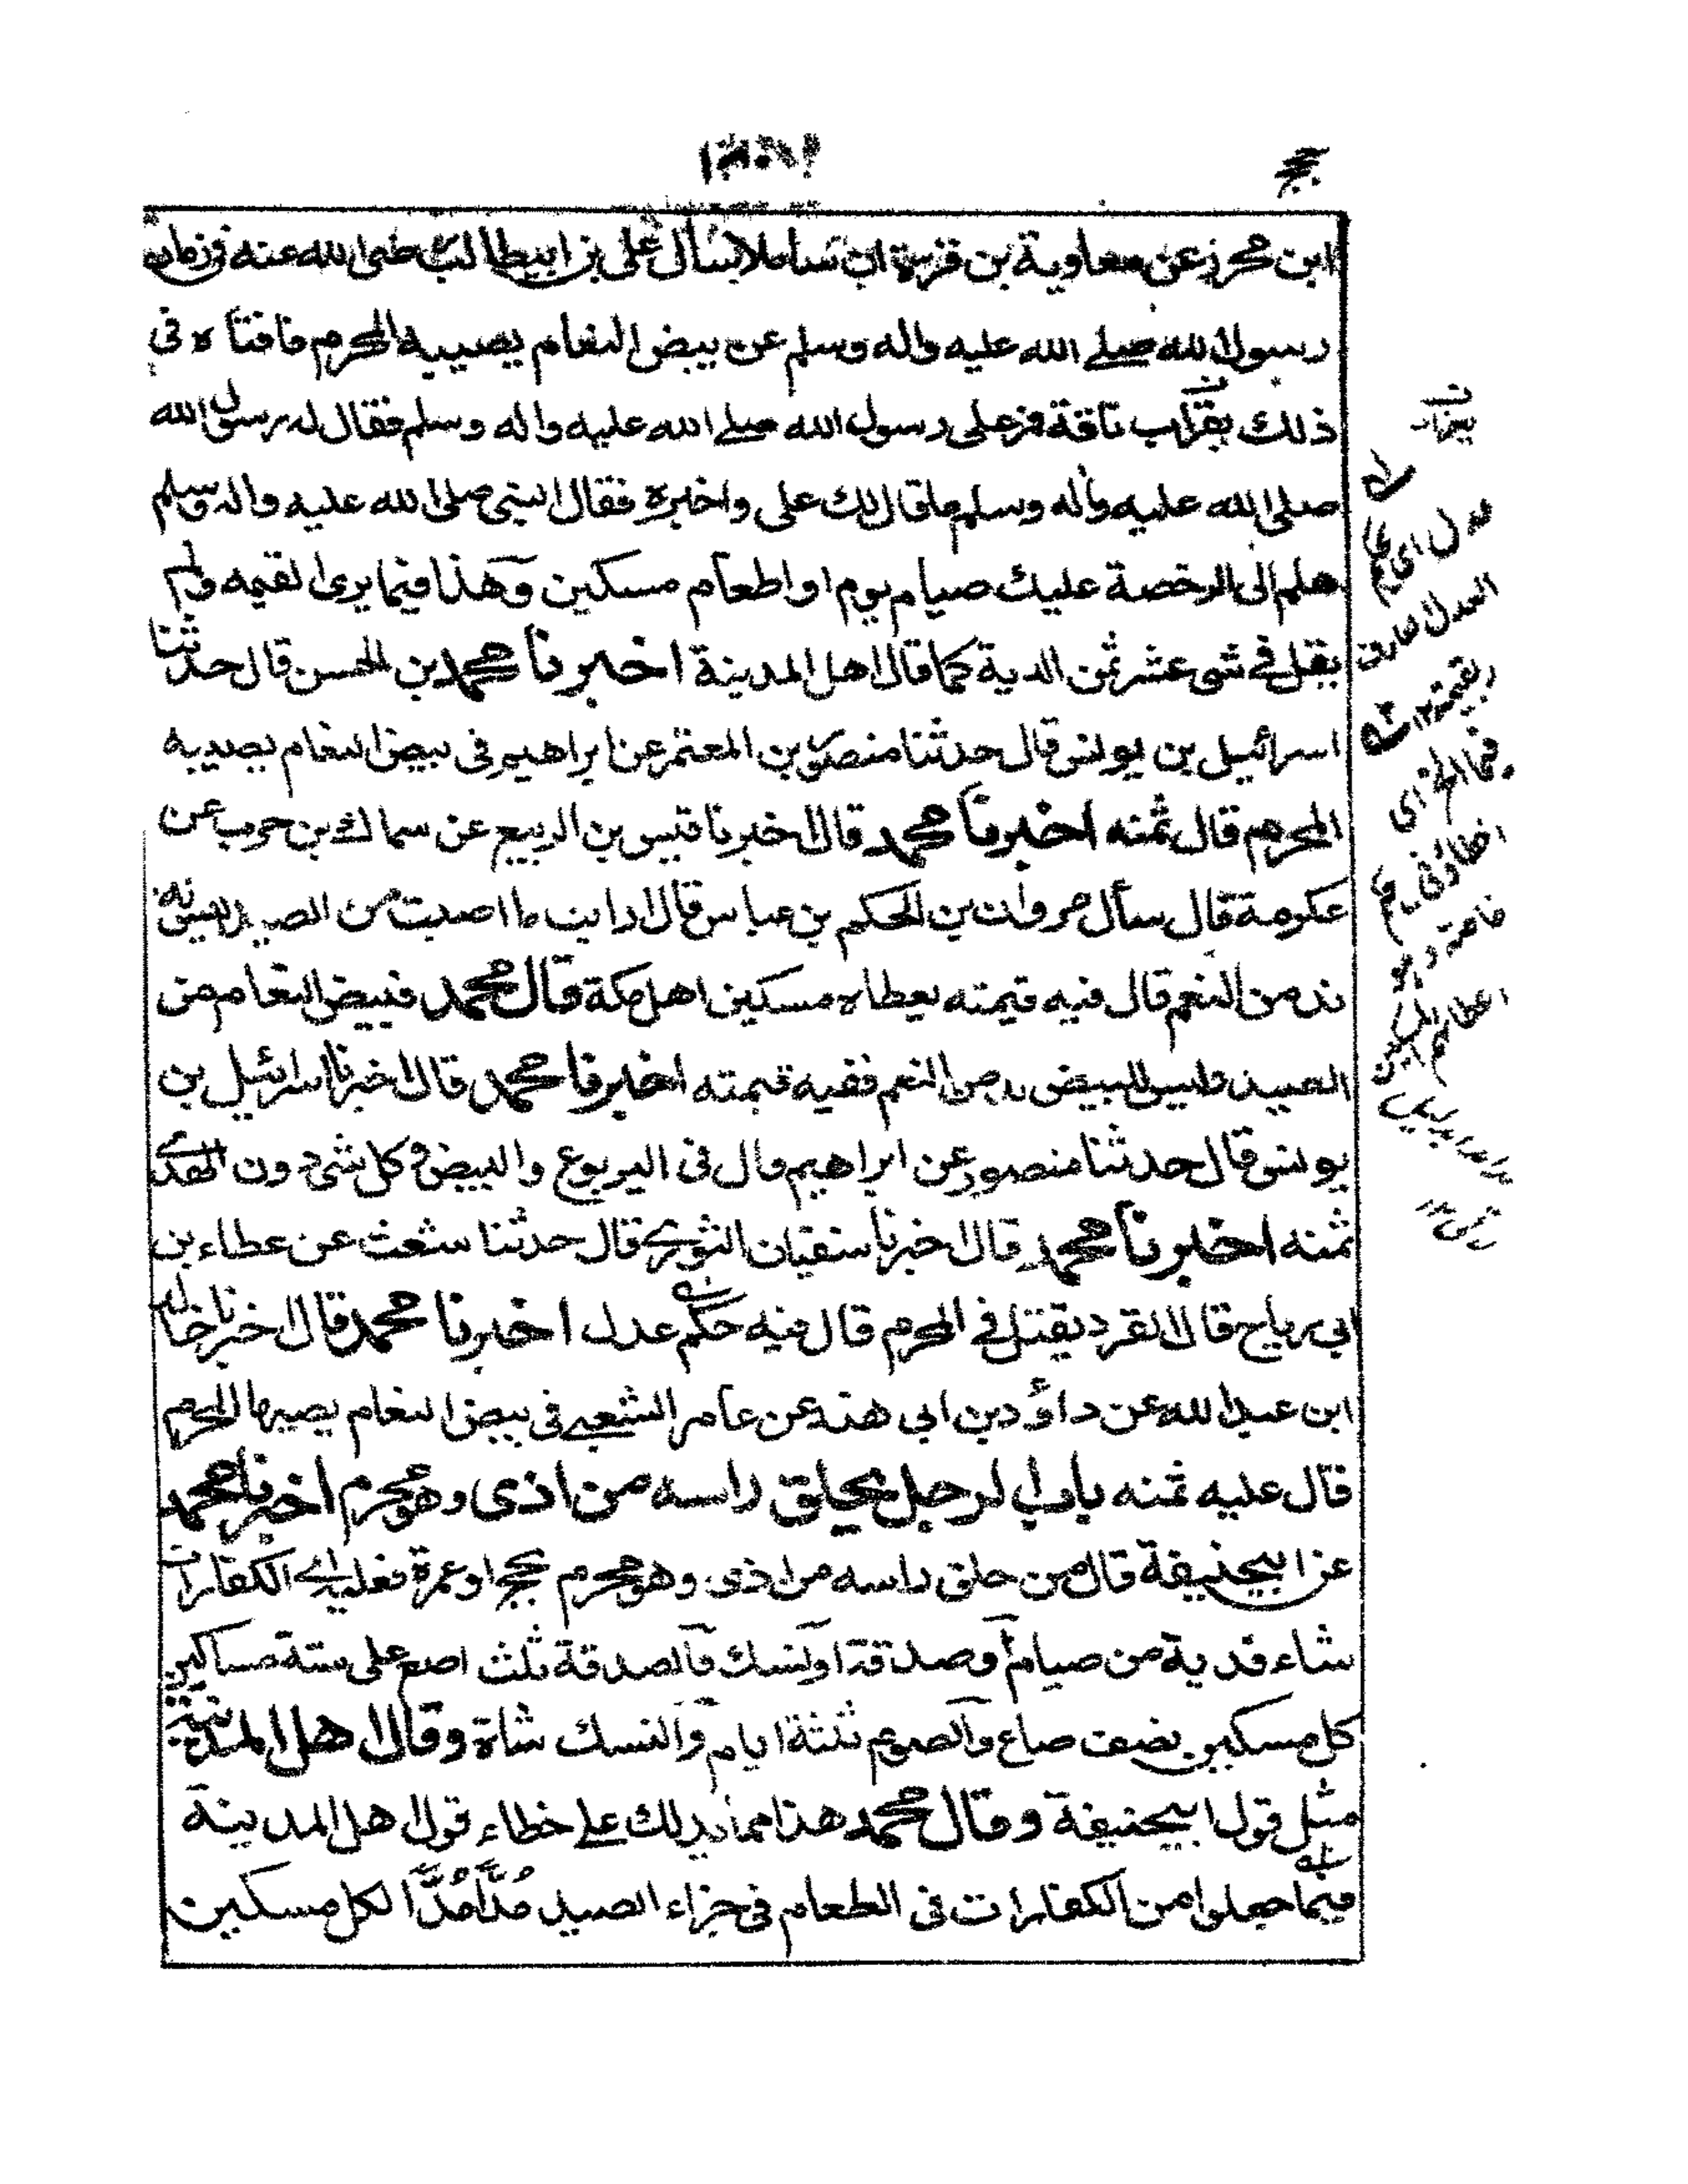 ابن محرز عن معاوية بن قرة ان سائلا سأل على بن ابيطالب رضى الله عنه فى زمان
رسول الله صلے الله عليه واله وسلم عن بيض النعام يصيبه المحرم فافتاه فى
ذلك بقراب ناقة فمر على رسول الله صلے الله عليه واله وسلم فقال له رسول الله
صلى الله عليه واله وسلم ما قال لك على واخبره فقال النبى صلى الله عليه واله وسلم
هلم الى الرخصة عليك صيام يوم او اطعام مسكين وهذا فيما يرى القيمه ولم
يقل فے شى عشر ثمن الدية كما قال اهل المدينة اخبرنا محمد بن الحسن قال حدثنا
اسرائيل بن يونس قال حدثنا منصور بن المعتمر عن ابراهيم فى بيض النعام يصيبه
المحرم قال ثمنه اخبرنا محمد قال اخبرنا قيس بن الربيع عن سماك بن حرب عن
عكرمة قال سأل مروان بن الحكم بن عباس قال ارايت ما اصبت من الصيد ليس له
ند من النعم قال فيه قيمته يعطاه مسكين اهل مكة قال محمد فبيض النعام من
الصيد وليس للبيض ند من النعم ففيه قيمته اخبرنا محمد قال اخبرنا اسرائيل بن
يونس قال حدثنا منصور عن ابراهيم قال فى اليربوع والبيض وكل شى دون الهدى
ثمنه اخبرنا محمد قال اخبرنا سفيان الثورى قال حدثنا شعث عن عطاء بن
ابى رباح قال القرد يقتل فے المحرم قال فيه حكم عدل اخبرنا محمد قال اخبرنا خالد
ابن عبد الله عن داؤد بن ابى هند عن عامر الشعبے فى بيض النعام يصيبها المحرم
قال عليه ثمنه باب الرجل يحلق راسه من اذى وهو محرم اخبرنا محمد
عن ابيحنيفة قال من حلق راسه من اذى وهو محرم بحج او عمرة فعليه اے الكفارات
شاء فدية من صيام او صدقة او نسك فالصدقة ثلث اصع على ستة مساكين
كل مسكين نصف صاع والصوم ثلثة ايام والنسك شاة وقال اهل المدينة
مثل قول ابيحنيفة وقال محمد هذا مما يدلك علے خطاء قول اهل المدينة
فيما جعلوا من الكفارات فى الطعام فى جزاء الصيد مُدًّا مُدًّا لكل مسكين